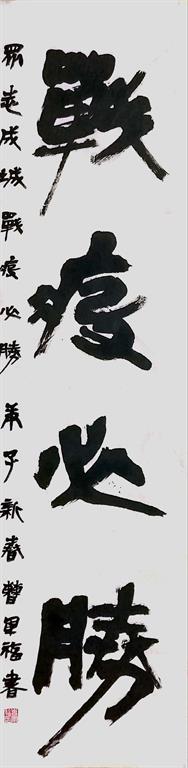 戰疫必勝
眾志成城戰疫必勝庚子新春曹書